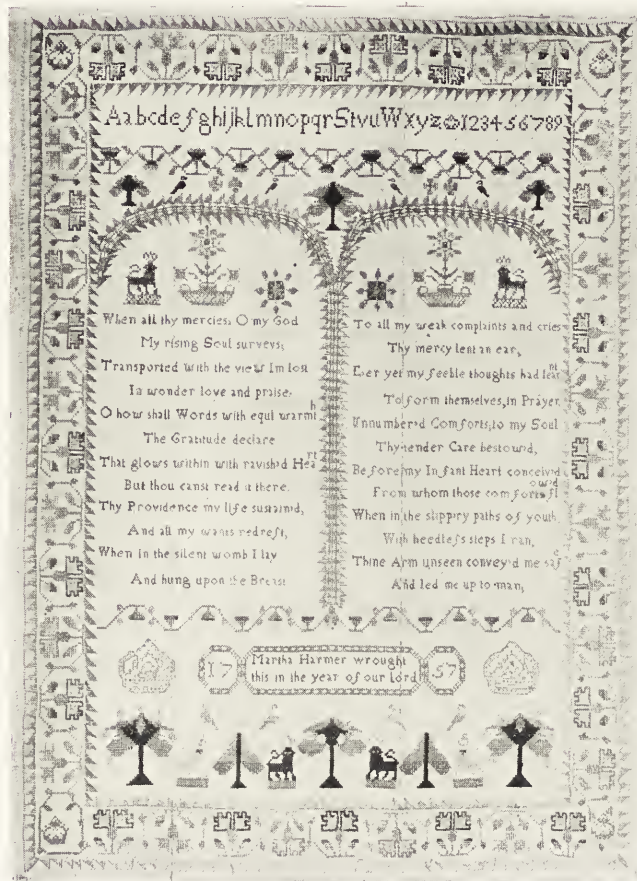 AabcdefghijklmnopqrStvuWxyz 123456789
When all thy mercies, O my God
My rising Soul surveys;
Transported with the view Im lost
In wonder love and praise.
O how shall Words with equl warmth
The Gratitude declare
That glows within with ravishd Heart
But thou canst read it there.
Thy Providence my life sustaind,
And all my wants redrest,
When in the silent womb I lay
And hung upon the Breast
To all my weak complaints and cries
Thy mercy lent an ear,
Eer yet my feeble thoughts had learnt
To form themselves, in Prayer
Unnumberd Comforts, to my Soul
Thy tender Care bestowd,
Before my Infant Heart conceivd
From whom those comforts flowd
When in the slippry paths of youth
With heedless steps I ran,
Thine Arm unseen convey'd me safe
And led me up to man,
17 Martha Harmer wrought 57
this in the year of our Lord